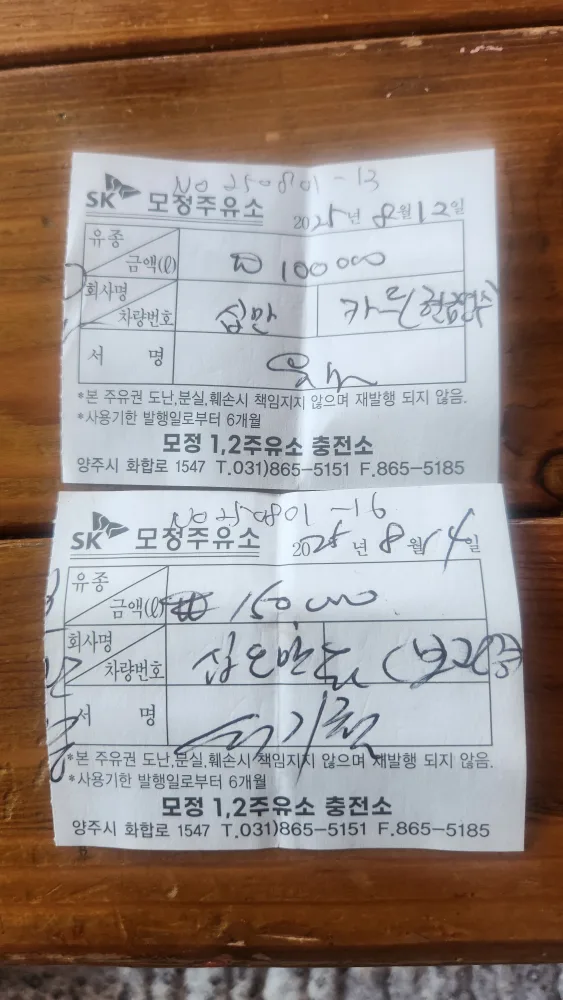 NO 250801-13
SK 모정주유소 2025년 8월 12일
유종
금액(ℓ) ₩ 100000
회사명
차량번호 십만 카드
서 명
*본 주유권 도난,분실,훼손시 책임지지 않으며 재발행 되지 않음.
*사용기한 발행일로부터 6개월
모정 1,2주유소 충전소
양주시 화합로 1547 T.031)865-5151 F.865-5185
NO 250801-16
SK 모정주유소 2025년 8월 14일
유종
금액(ℓ) 150000
회사명
차량번호 십오만
서 명
*본 주유권 도난,분실,훼손시 책임지지 않으며 재발행 되지 않음.
*사용기한 발행일로부터 6개월
모정 1,2주유소 충전소
양주시 화합로 1547 T.031)865-5151 F.865-5185